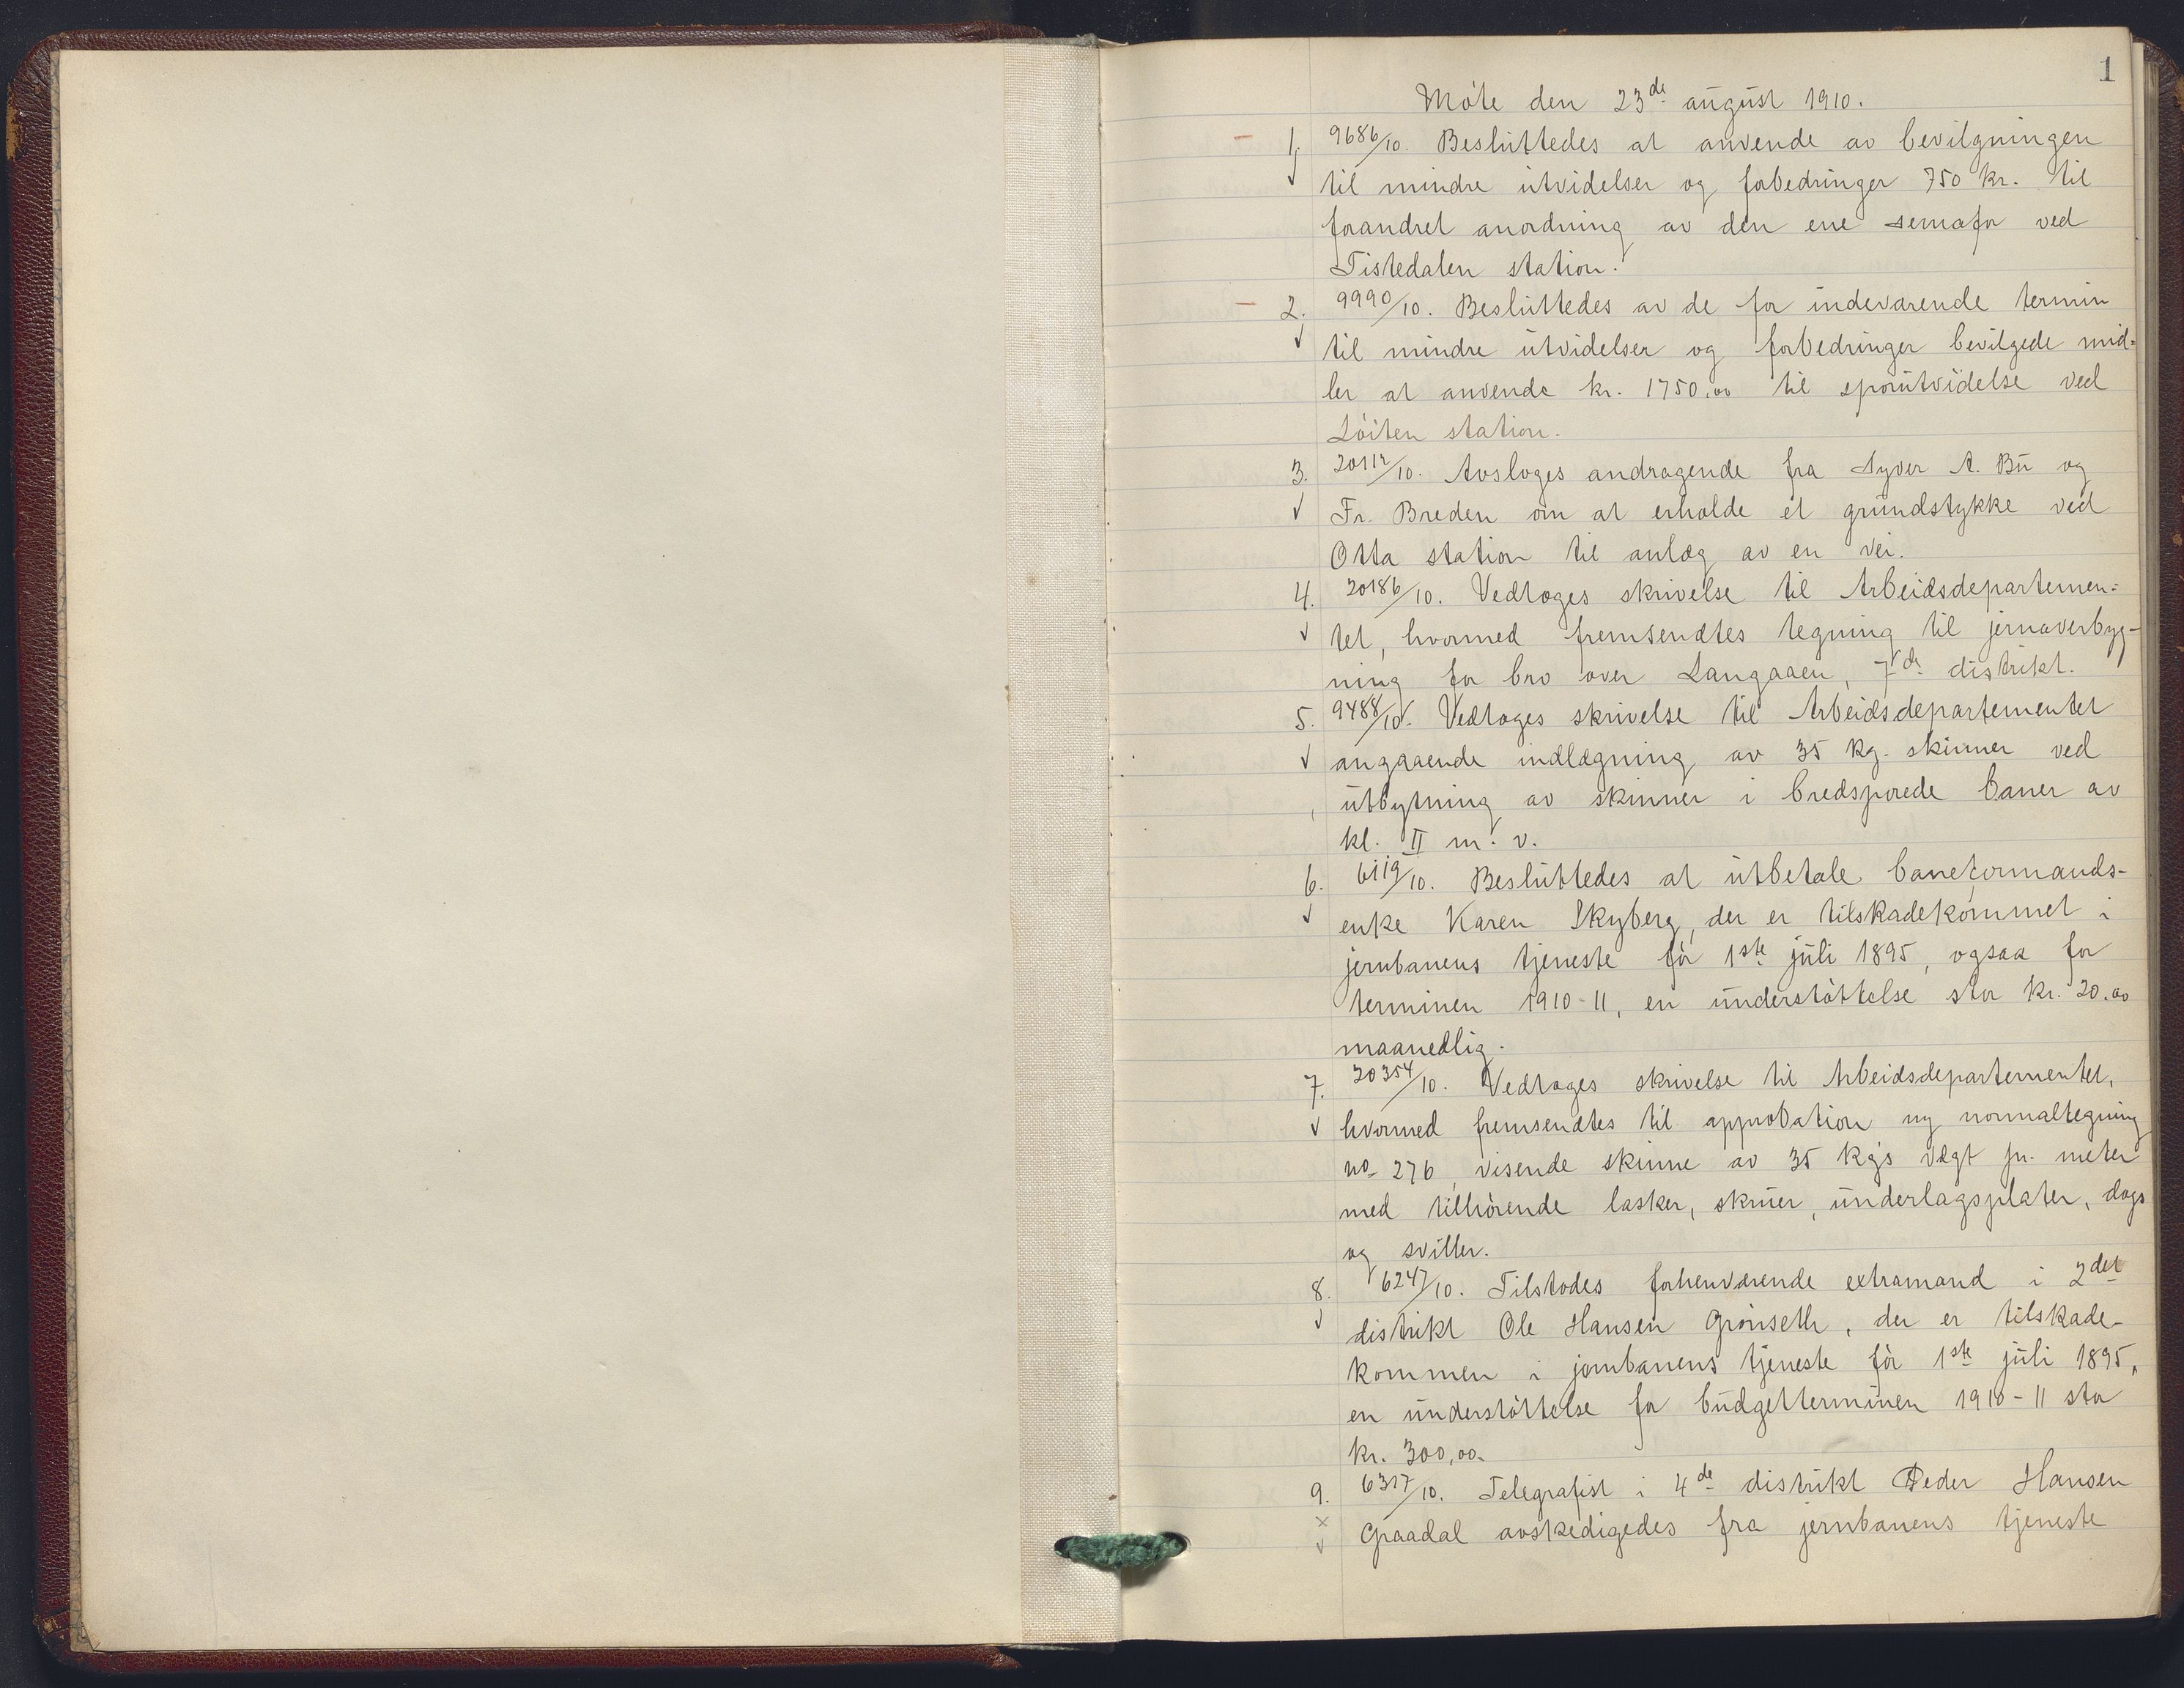 1
Møte den 23de august 1910.
1. 9686/10. Besluttedes at anvende av bevilgningen
til mindre utvidelser og forbedringer 750 kr. til
forandret anordning av den ene semafor ved
Tistedalen station.
2. 9990/10. Besluttedes av de for indeværende termin
til mindre utvidelser og forbedringer bevilgede mid-
ler at anvende kr. 1750,00 til sporutvidelse ved
Løiten station.
3. 20112/10. Avsloges andragende fra Syver A. Bu og
Fr. Breden om at erholde et grundstykke ved
Otta station til anlæg av en vei.
4. 20186/10. Vedtoges skrivelse til Arbeidsdepartemen-
tet, hvormed fremsendtes tegning til jernoverbyg-
ning for bro over Langaaen, 7de distrikt.
5. 9488/10. Vedtoges skrivelse til Arbeidsdepartementet
angaaende indlægning av 35 kg. skinner ved
utbytning av skinner i bredsporede baner av
kl. II m. v.
6. 6119/10. Besluttedes at utbetale baneformands-
enke Karen Skyberg, der er tilskadekommet i
jernbanens tjeneste før 1ste juli 1895, ogsaa for
terminen 1910-11, en understøttelse stor kr. 20.00
maanedlig.
7. 20354/10. Vedtoges skrivelse til Arbeidsdepartementet,
hvormed fremsendtes til approbation ny normaltegning
no 276, visende skinne av 35 kgs vægt pr. meter
med tilhørende lasker, skruer, underlagsplater, dogs
og sviller.
8. 6247/10. Tilstodes forhenværende extramand i 2det
distrikt Ole Hansen Grønseth, der er tilskade-
kommen i jernbanens tjeneste før 1ste juli 1895,
en understøttelse for budgetterminen 1910-11 stor
kr. 300,00.
9. 6317/10. Telegrafist i 4de distrikt Peder Hansen
Graadal avskedigedes fra jernbanens tjeneste